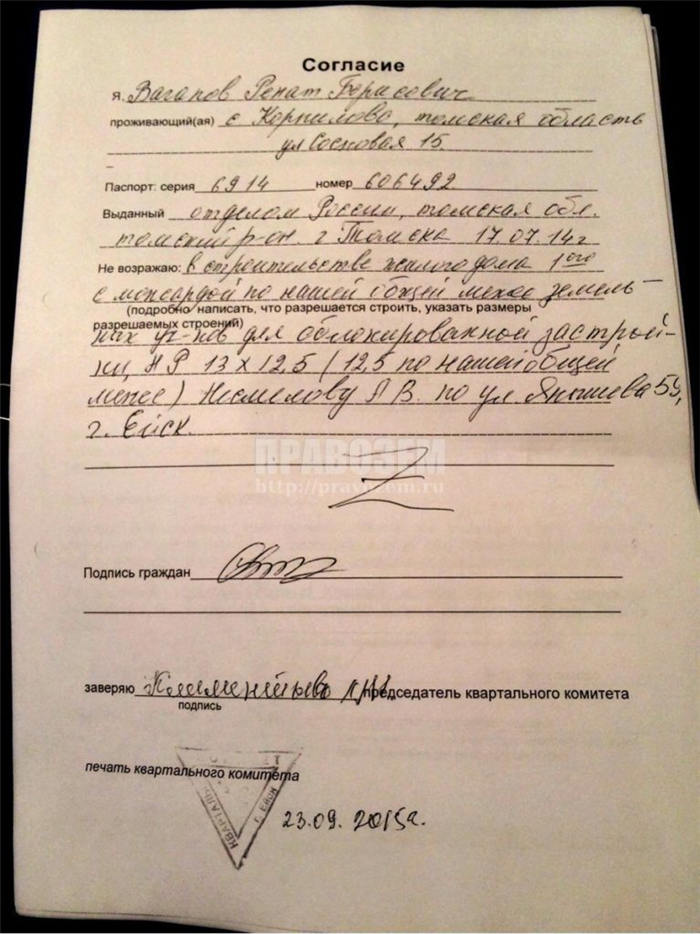 Согласие
я, Вагапов Ренат Борисович
проживающий(ая) с Корнилово, томская область
ул Сосновая 15.
Паспорт: серия 6914 номер 606492
Выданный отделом России, томская обл.
томский р-он. г Томска 17.07.14г
Не возражаю: в строительстве жилого дома 1ого
с мансардой по нашей общей меже земель-
(подробно написать, что разрешается строить, указать размеры
разрешаемых строений)
ных уч-ков для облокированной застрой-
ки, НР 13 х 12,5 (12,5 по нашей общей
меже) Несмелову А В. по ул Янышева 59,
г. Ейск.
ПРАВОЗЕМ
http://pravozem.ru
Подпись граждан
заверяю председатель квартального комитета
подпись
печать квартального комитета
КВАРТАЛЬ г. Ейск
23.09.2015г.